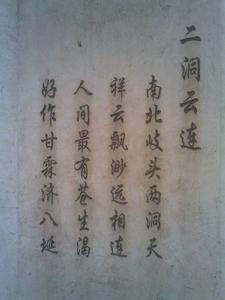 二洞云连
南北岐头两洞天
祥云飘渺远相连
人间最有苍生渴
好作甘霖济八埏